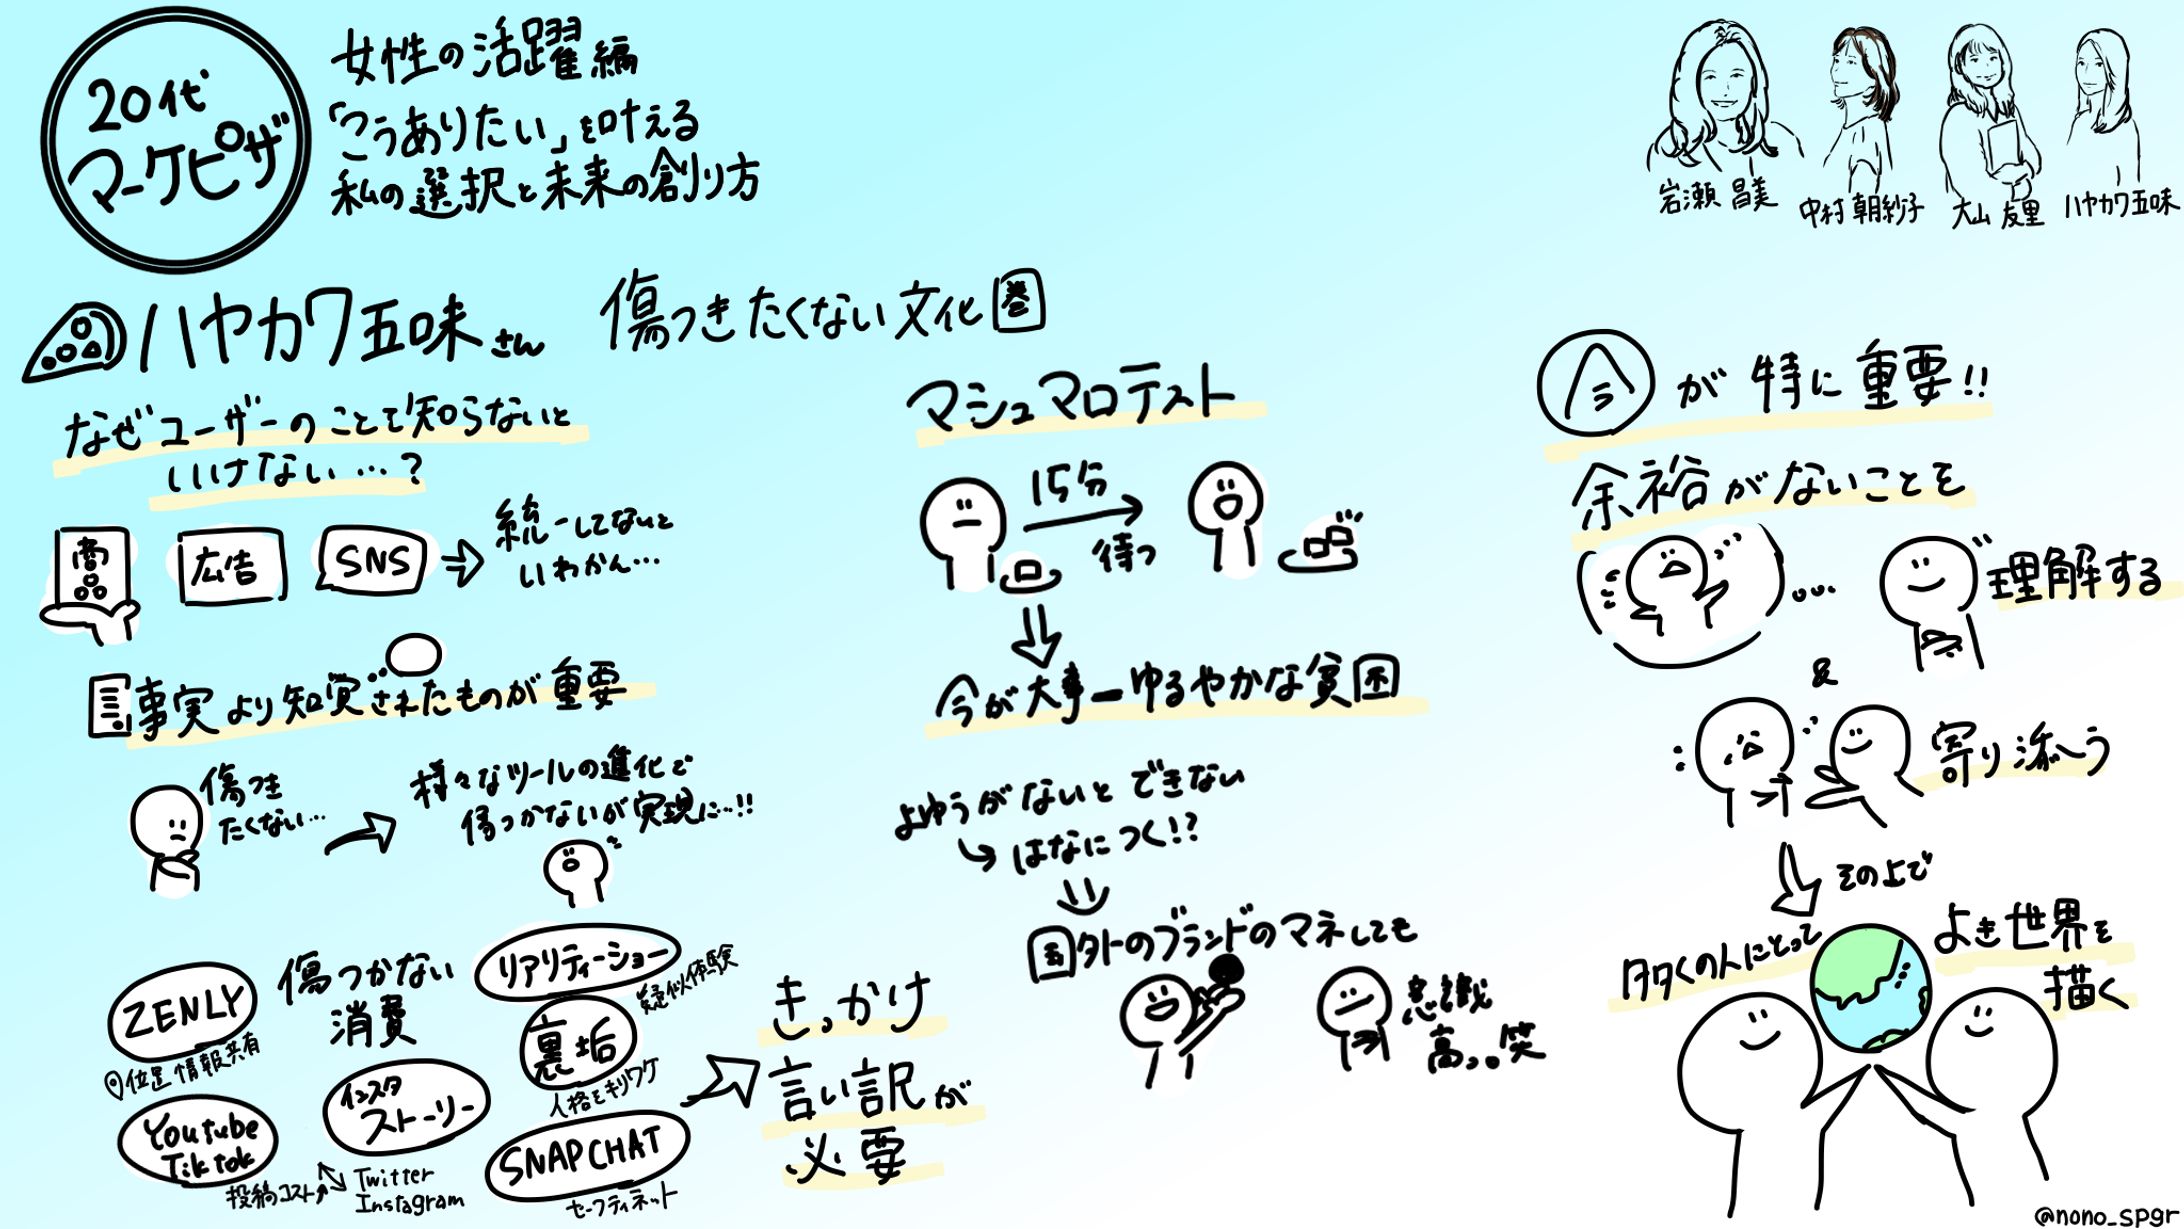 20代
マーケピザ
女性の活躍編
「こうありたい」を叶える
私の選択と未来の創り方
岩瀬 昌美
中村 朝紗子
大山 友里
ハヤカワ五味
ハヤカワ五味さん
傷つきたくない文化圏
なぜユーザーのことを知らないと
いけない…?
商品
広告
SNS
統一してないと
いわかん…
事実より知覚されたものが重要
傷つき
たくない…
様々なツールの進化で
傷つかないが実現に…!!
傷つかない
消費
ZENLY
位置情報共有
リアリティーショー
疑似体験
裏垢
人格をキリワケ
インスタ
ストーリー
Youtube
Tiktok
投稿コスト↑
Twitter
Instagram
SNAPCHAT
セーフティネット
きっかけ
言い訳が
必要
マシュマロテスト
15分
待つ
今が大事ーゆるやかな貧困
よゆうがないとできない
はなにつく!?
国外のブランドのマネしても
意識
高っ。笑
今が特に重要!!
余裕がないことを
理解する
&
寄り添う
その上で
多くの人にとって
よき世界を
描く
@nono_spgr